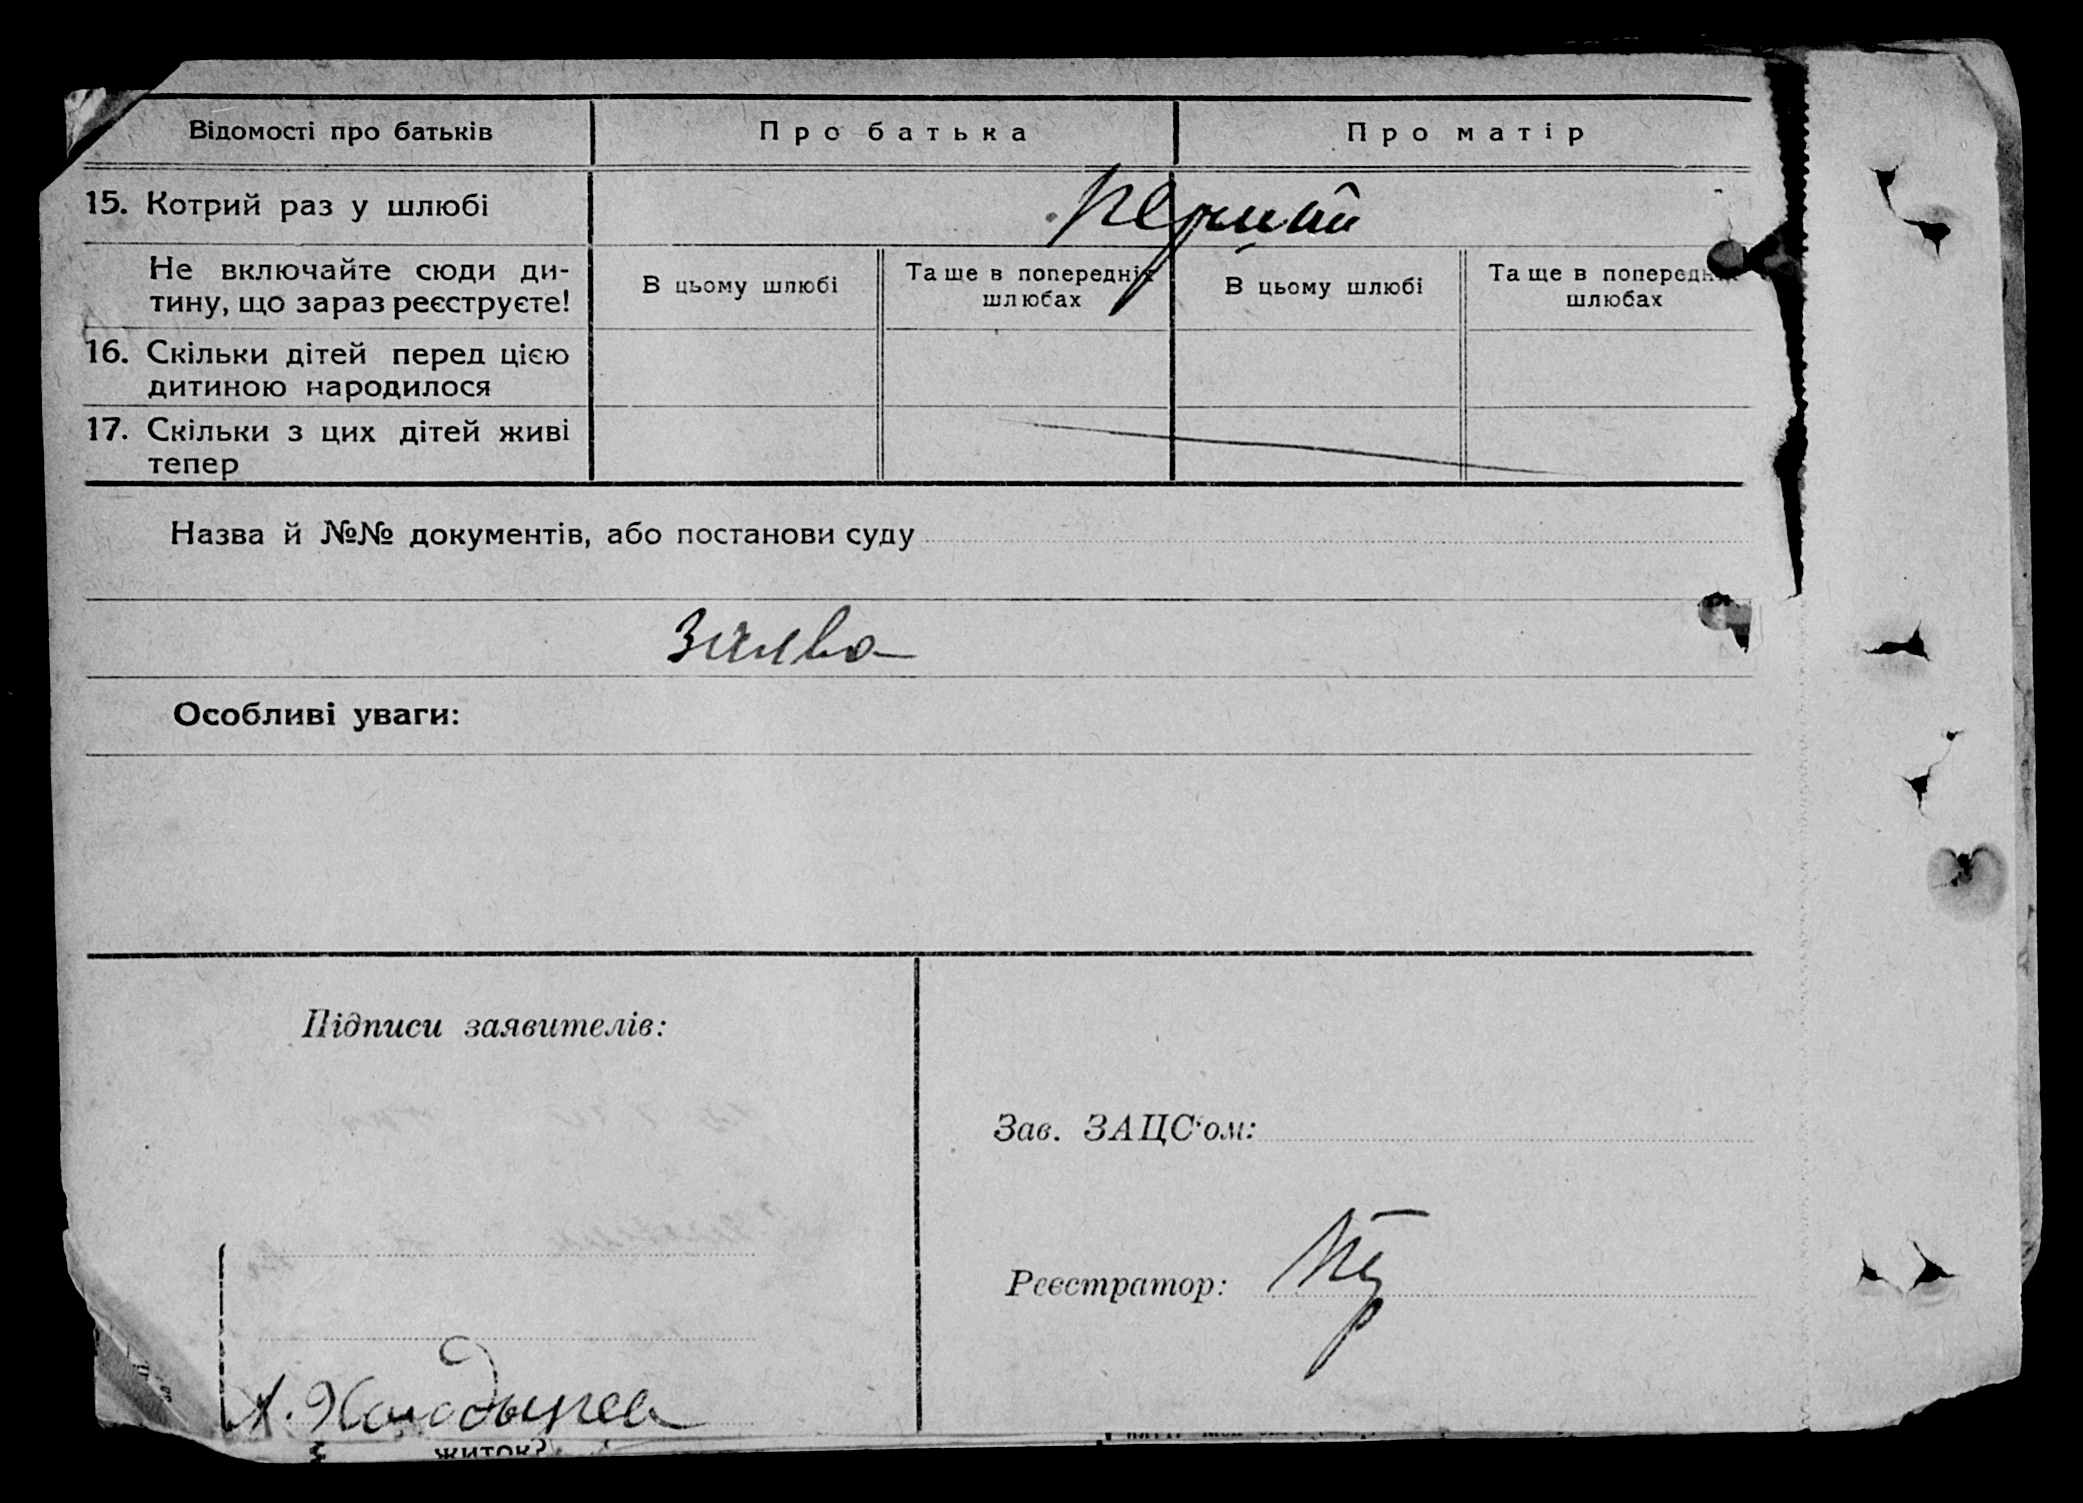 Відомості про батьків
Про батька
Про матір
15. Котрий раз у шлюбі
перший
Не включайте сюди ди-
тину, що зараз реєструєте!
В цьому шлюбі
Та ще в попередніх
шлюбах
В цьому шлюбі
Та ще в попередніх
шлюбах
16. Скільки дітей перед цією
дитиною народилося
17. Скільки з цих дітей живі
тепер
Назва й №№ документів, або постанови суду
заява
Особливі уваги:
Підписи заявителів:
Зав. ЗАЦС'ом:
Реєстратор:
житок?